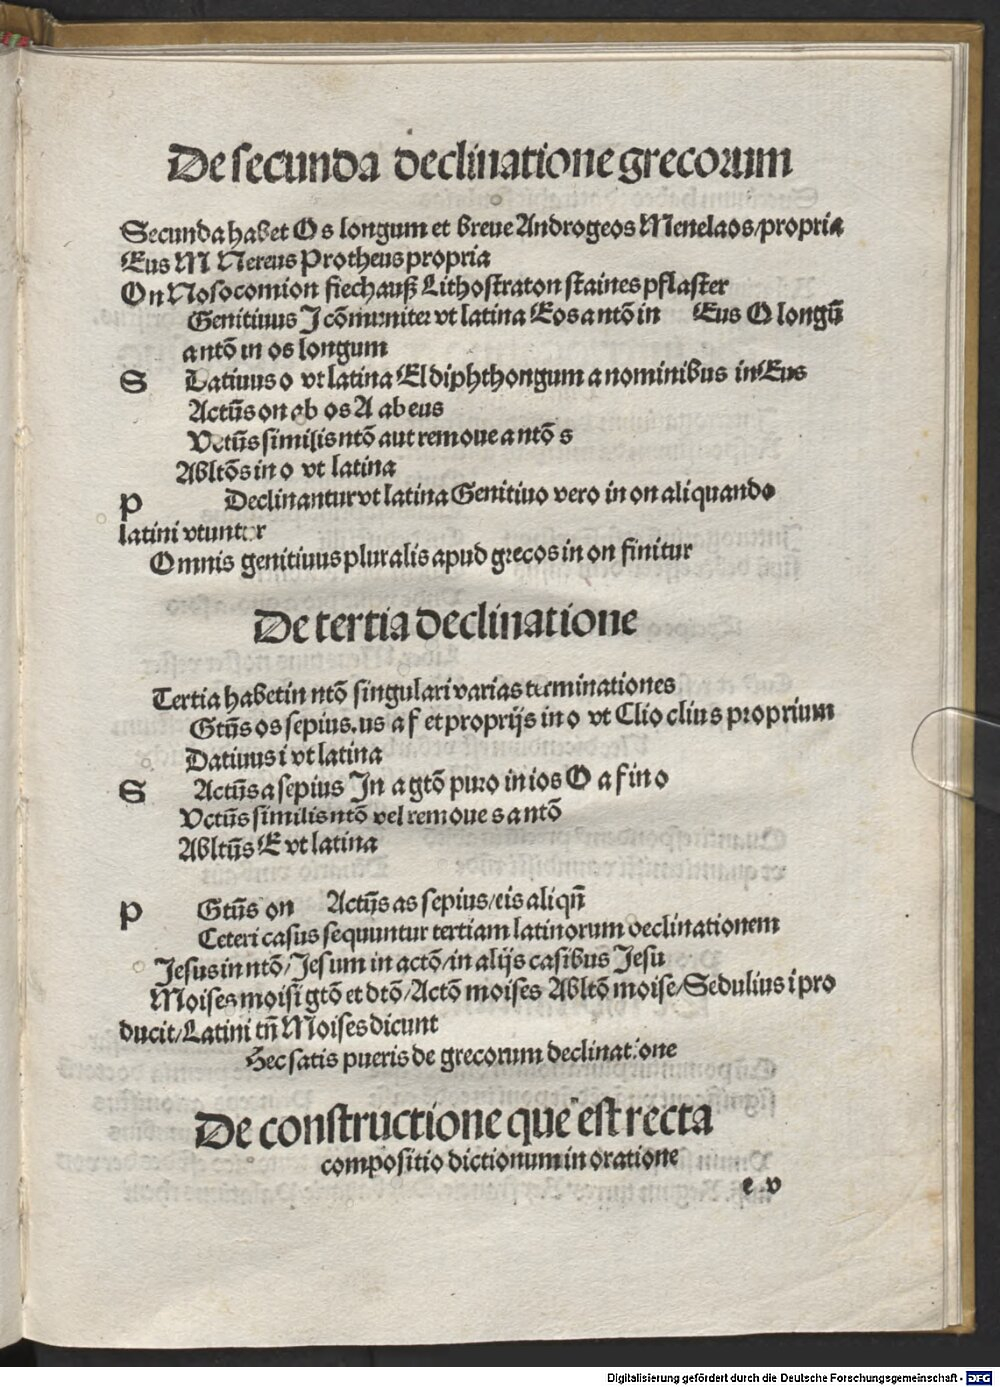 De secunda declinatione grecorum
Secunda habet Os longum et breue Androgeos Menelaos/propria
Eus M Nereus Protheus propria
On Nosocomion siechauß Lithostraton staines pflaster
Genitiuus I cõmuniter vt latina Eos a ntõ in Eus O longũ
a ntõ in os longum
S Datiuus o vt latina El diphthongum a nominibus in Eus
Actũs on ab os A ab eus
Vctũs similis ntõ aut remoue a ntõ s
Abltõs in o vt latina
P Declinantur vt latina Genitiuo vero in on aliquando
latini vtuntur
Omnis genitiuus pluralis apud grecos in on finitur
De tertia declinatione
Tertia habet in ntõ singulari varias terminationes
Gtũs os sepius. us a f et proprijs in o vt Clio clius proprium
Datiuus i vt latina
S Actũs a sepius In a gtõ puro in ios O a f in o
Vctũs similis ntõ vel remoue s a ntõ
Abltũs E vt latina
P Gtũs on Actũs as sepius/eis aliqñ
Ceteri casus sequuntur tertiam latinorum declinationem
Jesus in ntõ/Jesum in actõ/in alijs casibus Jesu
Moises moisi gtõ et dtõ/Actõ moises Abltõ moise/Sedulius i pro
ducit/Latini tñ Moises dicunt
Hec satis pueris de grecorum declinatione
De constructione que est recta
compositio dictionum in oratione
e v
Digitalisierung gefördert durch die Deutsche Forschungsgemeinschaft - DFG